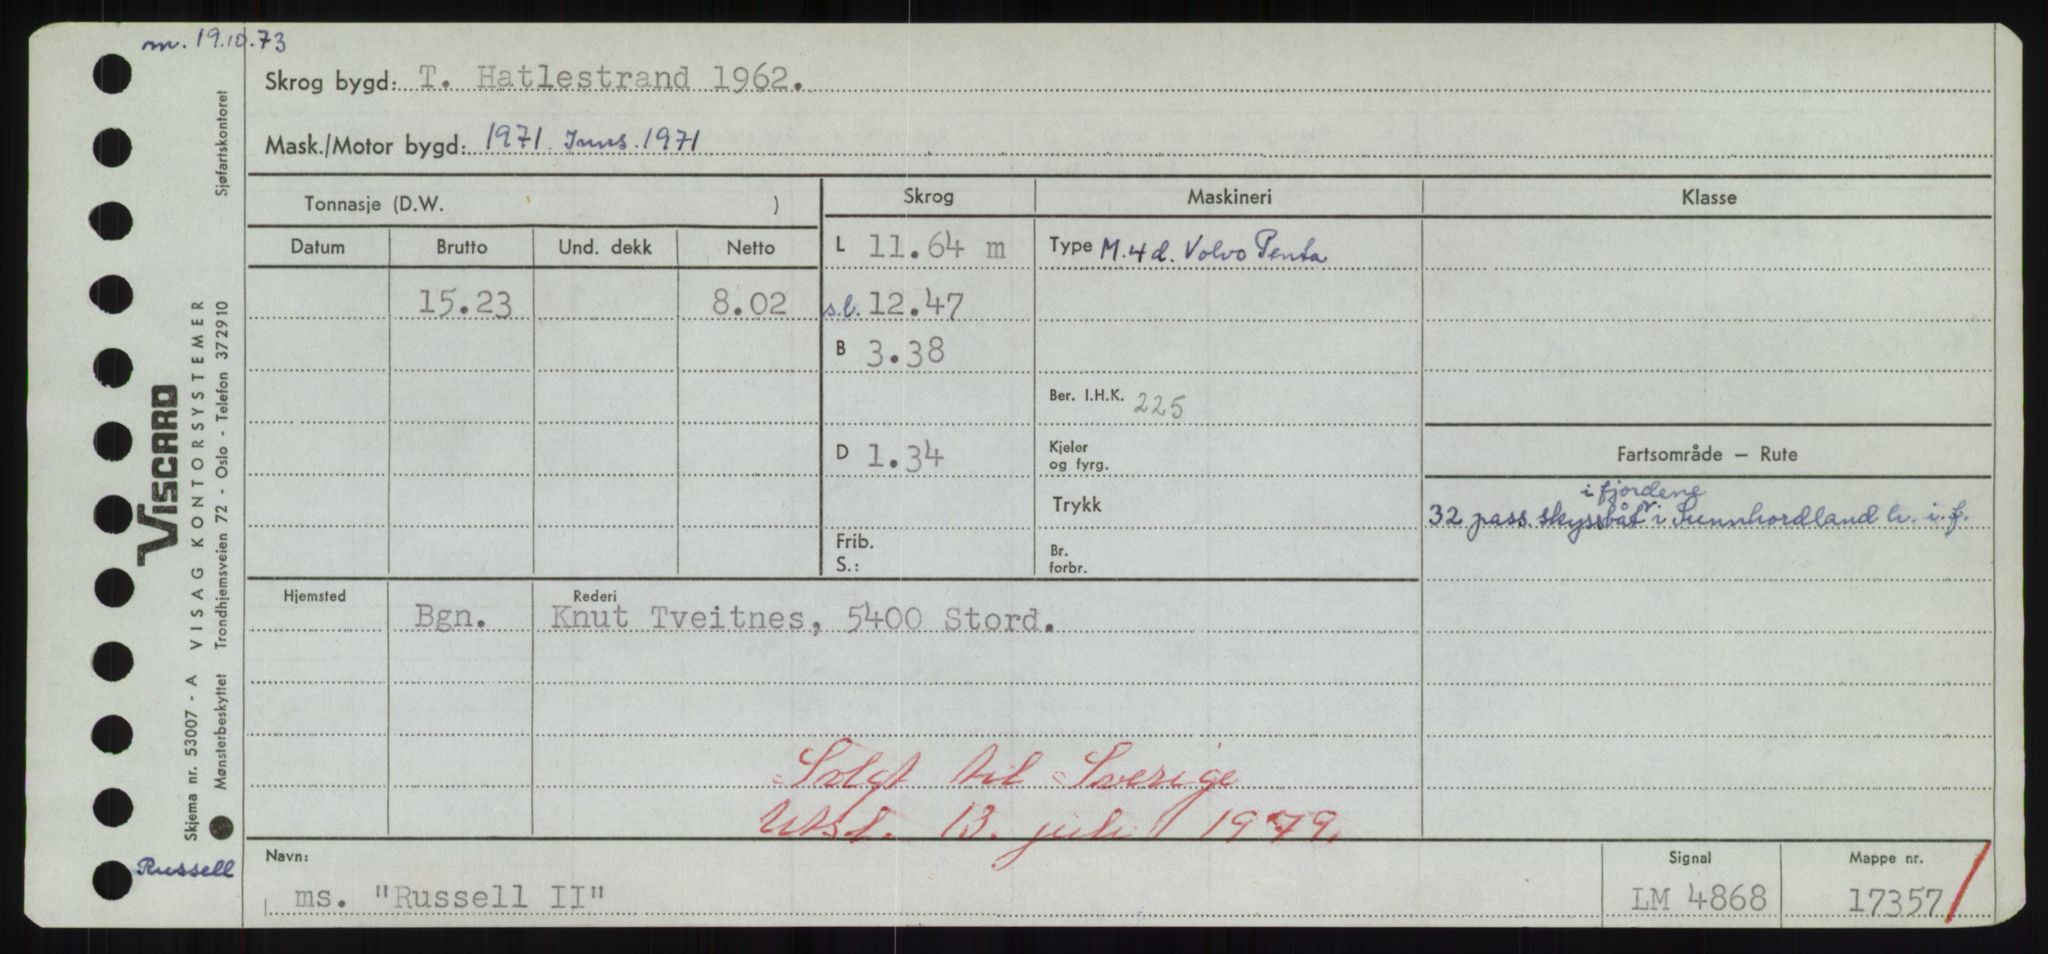 m. 19.10.73
Skrog bygd: T. Hatlestrand 1962.
Mask./Motor bygd: 1971 Inns. 1971
Tonnasje (D.W. )
Skrog
Maskineri
Klasse
Datum Brutto Und. dekk Netto
L 11.64 m
Type M.4d. Volvo Penta
15.23 8.02
s.l. 12.47
B 3.38
Ber. I.H.K. 225
D 1.34
Kjeler
og fyrg.
Fartsområde – Rute
Trykk
i fjordene
32 pass. skyssbåt i Sunnhordland h. i. f.
Frib.
S.:
Br.
forbr.
Hjemsted Bgn.
Rederi
Knut Tveitnes, 5400 Stord.
Solgt til Sverige
Utsl. 13. juli 1979.
Navn:
ms. "Russell II"
Signal
LM 4868
Mappe nr.
17357
Russell
VISCARD
Skjema nr. 53007 - A VISAG KONTORSYSTEMER
Mønsterbeskyttet Trondhjemsveien 72 - Oslo - Telefon 372910 Sjøfartskontoret